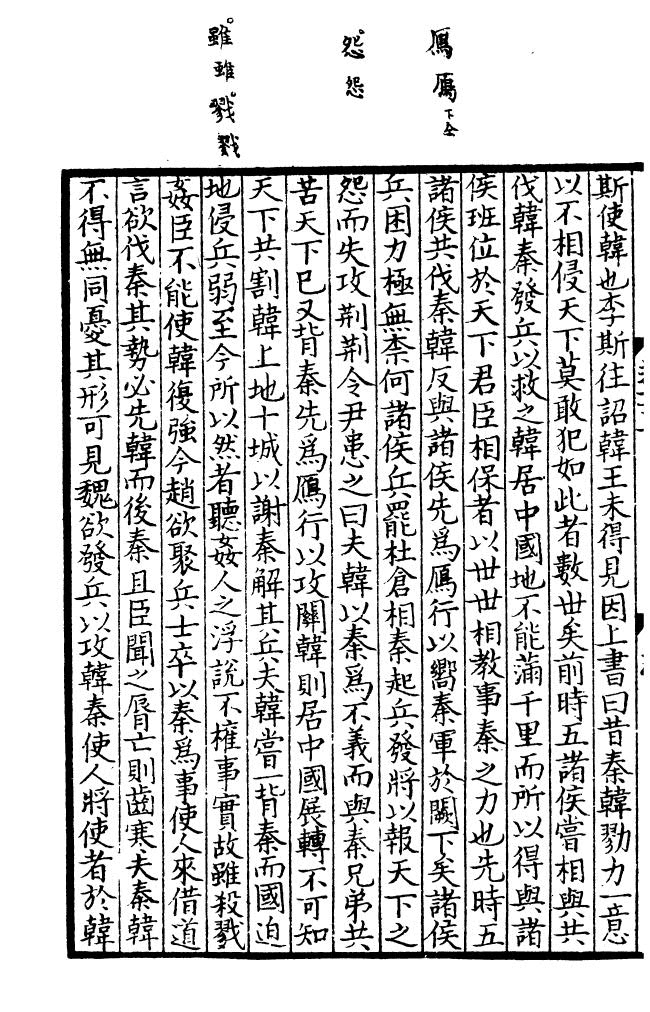 鴈鴈下仝
怨怨
雖雖戮戮
斯使韓也李斯往詔韓王未得見因上書曰昔秦韓勠力一意
以不相侵天下莫敢犯如此者數世矣前時五諸侯嘗相與共
伐韓秦發兵以救之韓居中國地不能滿千里而所以得與諸
侯班位於天下君臣相保者以世世相教事秦之力也先時五
諸侯共伐秦韓反與諸侯先爲鴈行以嚮秦軍於闕下矣諸侯
兵困力極無柰何諸侯兵罷杜倉相秦起兵發將以報天下之
怨而失攻荆荆令尹患之曰夫韓以秦爲不義而與秦兄弟共
苦天下已又背秦先爲鴈行以攻關韓則居中國展轉不可知
天下共割韓上地十城以謝秦解其兵夫韓嘗一背秦而國迫
地侵兵弱至今所以然者聽姦人之浮說不權事實故雖殺戮
姦臣不能使韓復強今趙欲聚兵士卒以秦爲事使人來借道
言欲伐秦其勢必先韓而後秦且臣聞之脣亡則齒寒夫秦韓
不得無同憂其形可見魏欲發兵以攻韓秦使人將使者於韓